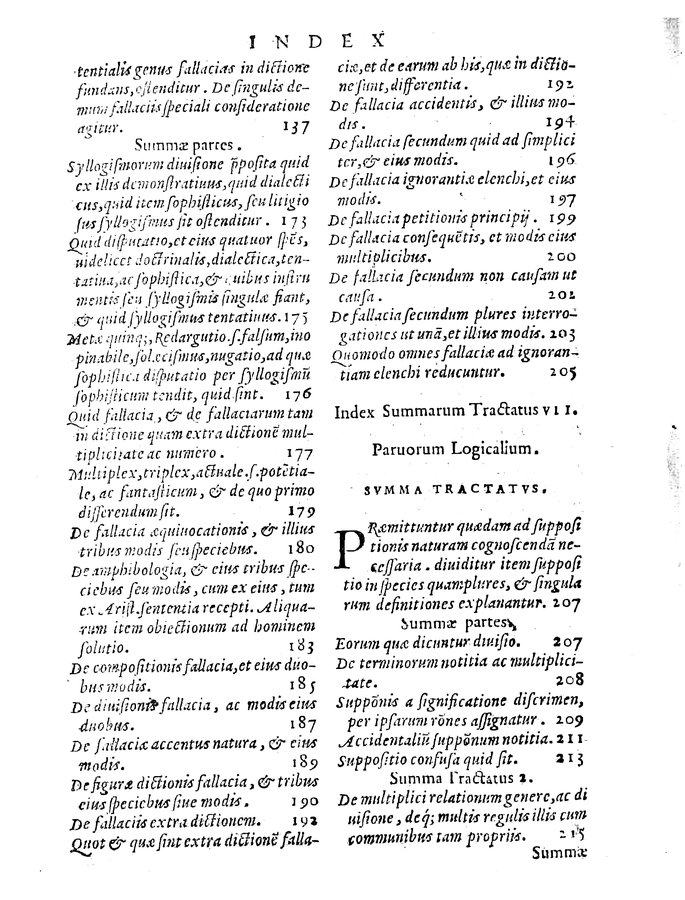 INDEX
tentialis genus fallacias in dictione
fundans, ostenditur. De singulis de-
mum fallaciis speciali consideratione
agitur. 137
Summæ partes.
Syllogismorum diuisione p̄posita quid
ex illis demonstratiuus, quid dialecti
cus, quid item sophisticus, seu litigio
sus syllogismus sit ostenditur. 173
Quid disputatio, et eius quatuor sp̄es,
uidelicet doctrinalis, dialectica, ten-
tatiua, ac sophistica, & quibus instru
mentis seu syllogismis singulæ fiant,
& quid syllogismus tentatiuus. 175
Metæ quinq;, Redargutio .s. falsum, ino
pinabile, solœcismus, nugatio, ad quæ
sophistica disputatio per syllogismũ
sophisticum tendit, quid sint. 176
Quid fallacia, & de fallaciarum tam
in dictione quam extra dictionē mul-
tiplicitate ac numero. 177
Multiplex, triplex, actuale .s. potētia-
le, ac fantasticum, & de quo primo
differendum sit. 179
De fallacia æquiuocationis, & illius
tribus modis seu speciebus. 180
De amphibologia, & eius tribus spe-
ciebus seu modis, cum ex eius, tum
ex Arist. sententia recepti. Aliqua-
rum item obiectionum ad hominem
solutio. 183
De compositionis fallacia, et eius duo-
bus modis. 185
De diuisionis fallacia, ac modis eius
duobus. 187
De fallaciæ accentus natura, & eius
modis. 189
De figuræ dictionis fallacia, & tribus
eius speciebus siue modis. 190
De fallaciis extra dictionem. 192
Quot & quæ sint extra dictionē falla-
ciæ, et de earum ab his, quæ in dictio-
ne sunt, differentia. 192
De fallacia accidentis, & illius mo-
dis. 194
De fallacia secundum quid ad simplici
ter, & eius modis. 196
De fallacia ignorantiæ elenchi, et eius
modis. 197
De fallacia petitionis principij. 199
De fallacia consequētis, et modis eius
multiplicibus. 200
De fallacia secundum non causam ut
causa. 202
De fallacia secundum plures interro-
gationes ut unã, et illius modis. 203
Quomodo omnes fallaciæ ad ignoran-
tiam elenchi reducuntur. 205
Index Summarum Tractatus VII.
Paruorum Logicalium.
SVMMA TRACTATVS.
PRæmittuntur quædam ad supposi
tionis naturam cognoscendã ne-
cessaria. diuiditur item supposi
tio in species quamplures, & singula
rum definitiones explanantur. 207
Summæ partes.
Eorum quæ dicuntur diuisio. 207
De terminorum notitia ac multiplici-
tate. 208
Suppōnis a significatione discrimen,
per ipsarum rōnes assignatur. 209
Accidentaliũ suppōnum notitia. 211
Suppositio confusa quid sit. 213
Summa Tractatus 2.
De multiplici relationum genere, ac di
uisione, deq́; multis regulis illis cum
communibus tam propriis. 215
Summæ